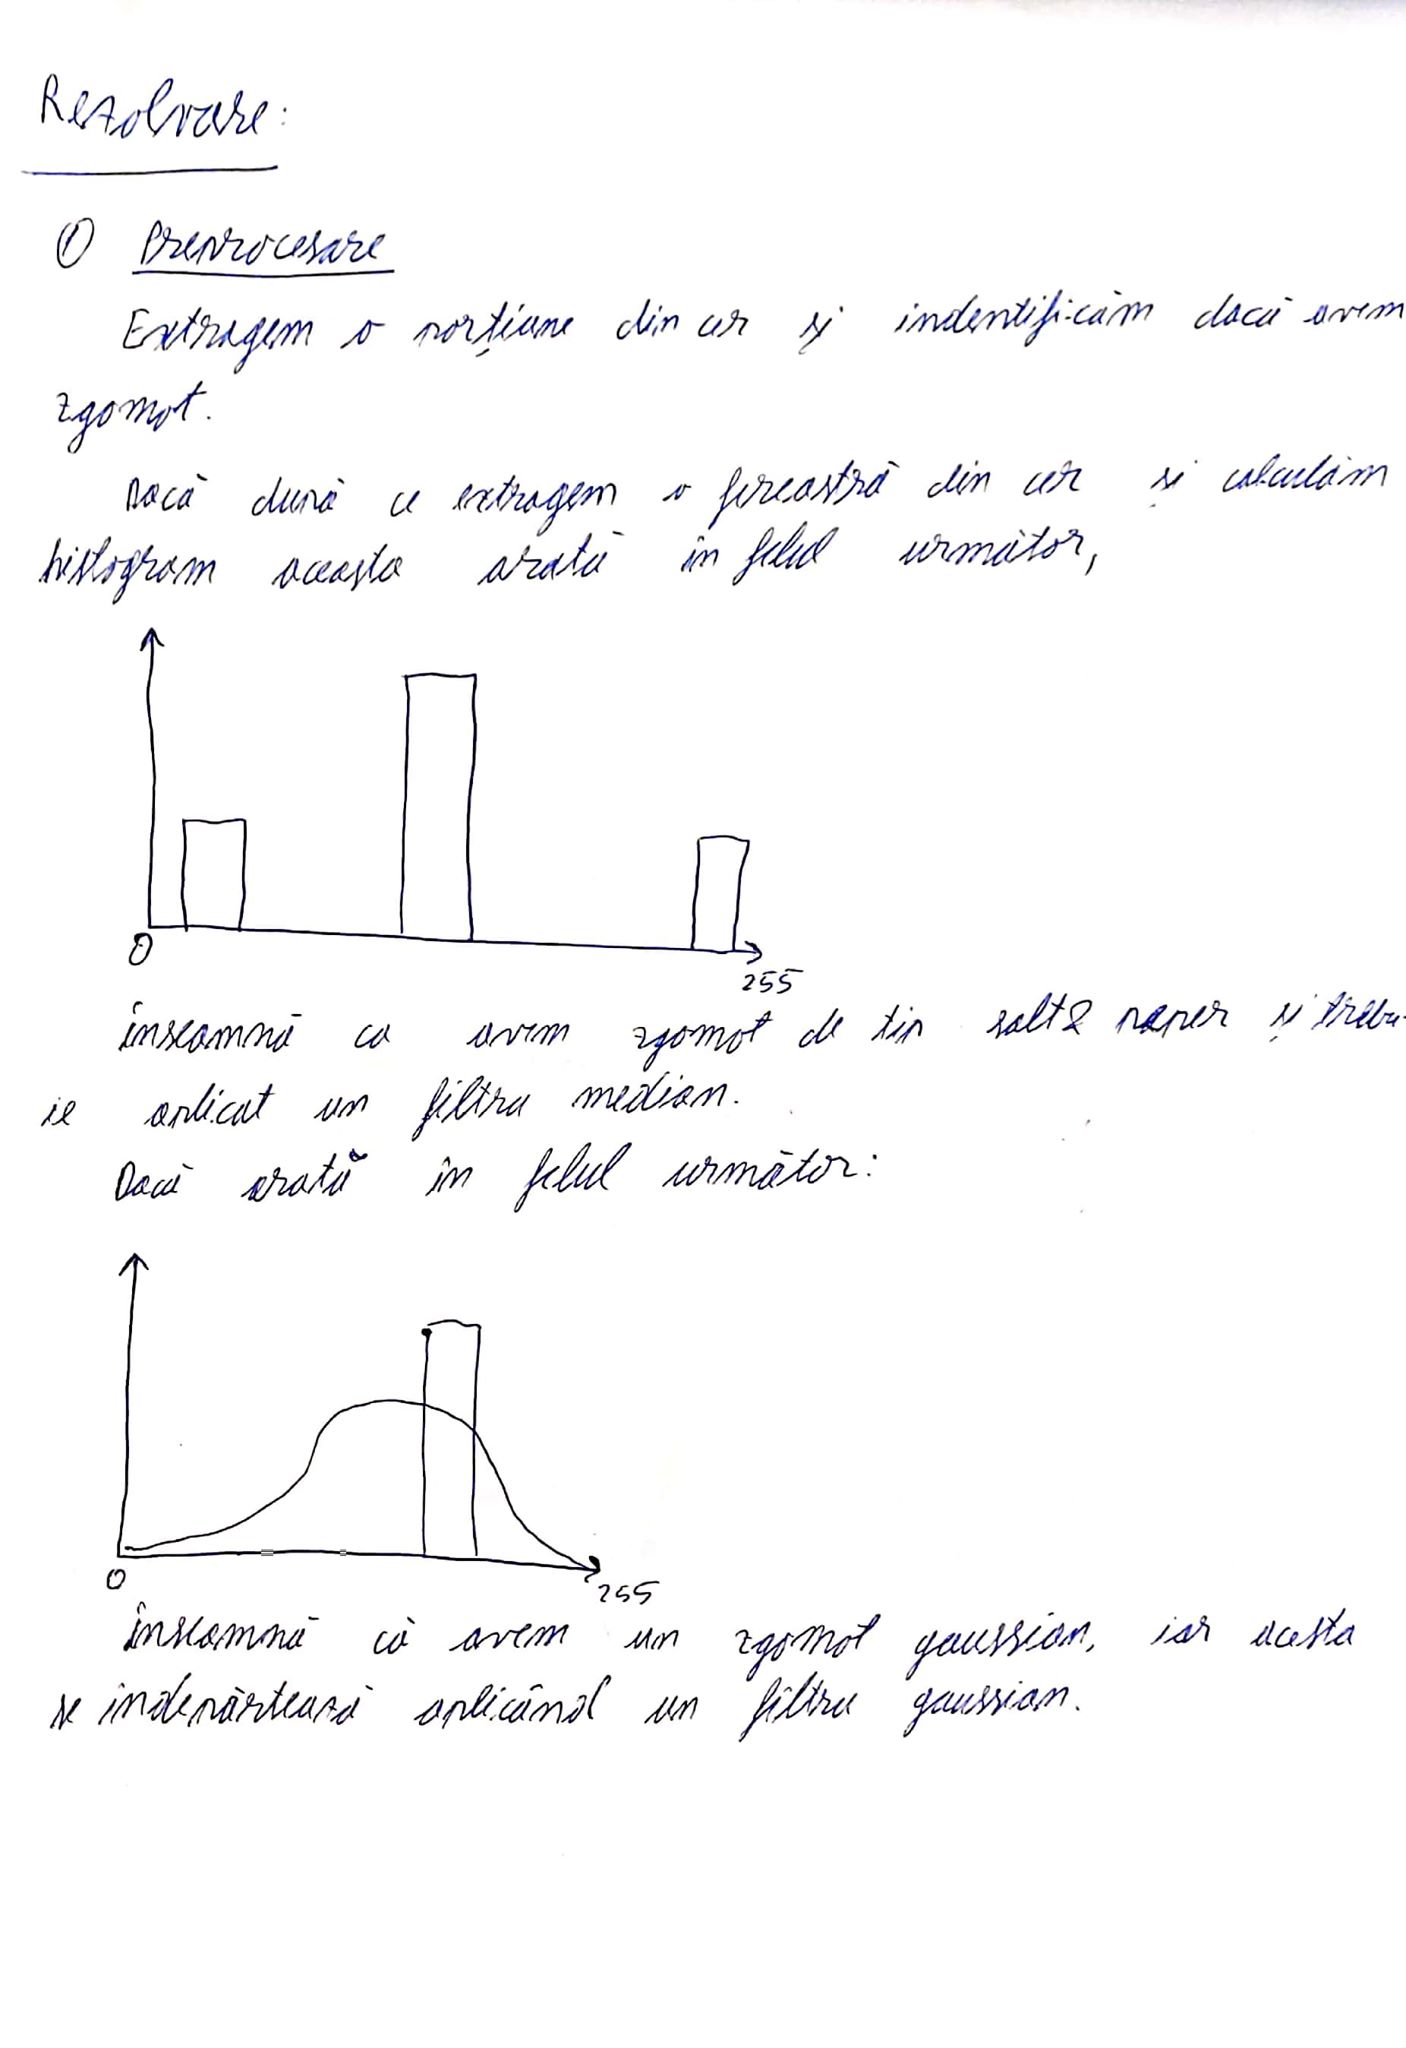 Rezolvare:
① Preprocesare
Extragem o porțiune din cer și indentificăm dacă avem
zgomot.
Dacă după ce extragem o fereastră din cer și calculăm
histogram aceasta arată în felul următor,
0
255
înseamnă ca avem zgomot de tip salt & paper și trebu-
ie aplicat un filtru median.
Dacă arată în felul următor:
0
255
înseamnă că avem un zgomot gaussian, iar acesta
se indepărtează aplicând un filtru gaussian.